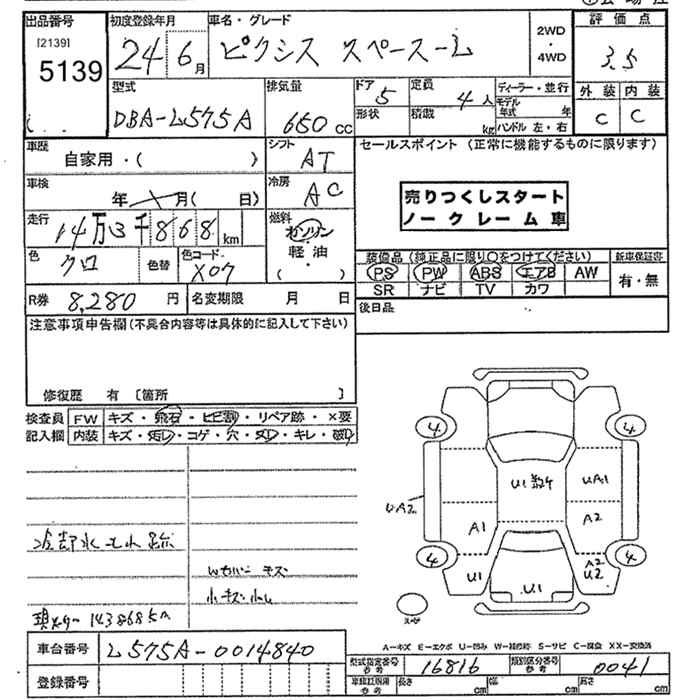 出品番号 初度登録年月 車名・グレード 評価点
[2139] 5139 24 6月 ピクシス スペース-L 2WD・4WD 3.5
型式 排気量 ドア 定員 ディーラー・並行 外装 内装
DBA-L575A 650 CC 5 4人 モデル年式 年 C C
形状 積載 kg ハンドル 左・右
車歴 自家用・( ) シフト AT セールスポイント (正常に機能するものに限ります)
車検 年 月( 日) 冷房 AC
売りつくしスタート
ノークレーム車
走行 14万3千868km 燃料 ガソリン・軽油( )
色 クロ 色替 色コード X07
装備品 (純正品に限り○をつけてください) 新車保証書
PS PW ABS エアB AW 有・無
SR ナビ TV カワ
R券 8,280円 名変期限 月 日 後日品
注意事項申告欄(不具合内容等は具体的に記入して下さい)
修復歴 有 〔箇所 〕
検査員 FW キズ・飛石・ヒビ割・リペア跡・×要
記入欄 内装 キズ・汚レ・コゲ・穴・スレ・キレ・破レ
4 4
U1 UA1
UA2
A1 A2
4 4
U1 A2 U2
U1
冷却水モレ跡
Wカバーキズ
小キズ小凹
現メーター 143868km
スペア
A-キズ E-エクボ U-凹み W-補修跡 S-サビ C-腐食 XX-交換済
車台番号 L575A-0014840
型式指定番号 参考 16816 類別区分番号 参考 0041
登録番号
長さ cm 幅 cm 高さ cm